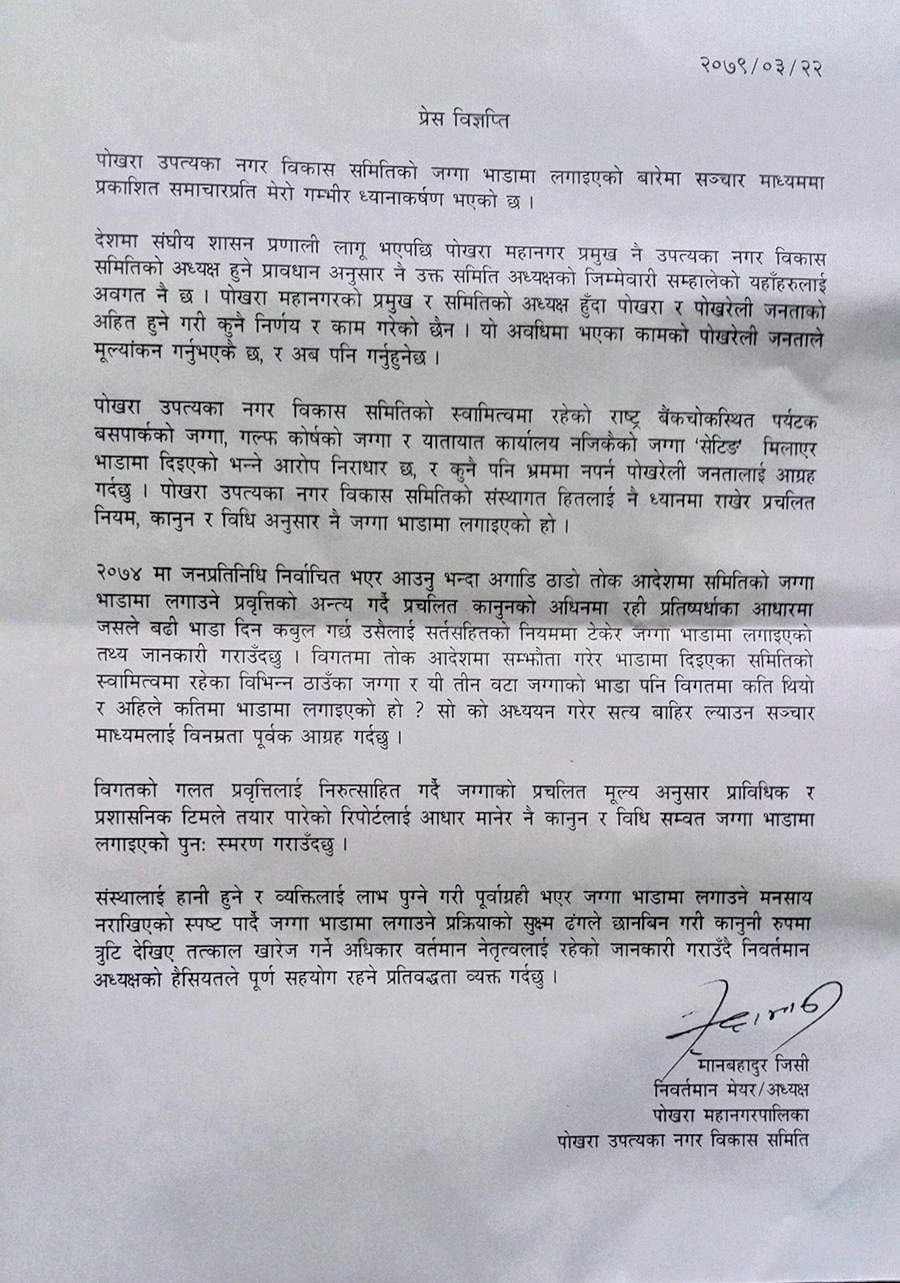 २०७९/०३/२२
प्रेस विज्ञप्ति
पोखरा उपत्यका नगर विकास समितिको जग्गा भाडामा लगाइएको बारेमा सञ्चार माध्यममा
प्रकाशित समाचारप्रति मेरो गम्भीर ध्यानाकर्षण भएको छ ।
देशमा संघीय शासन प्रणाली लागू भएपछि पोखरा महानगर प्रमुख नै उपत्यका नगर विकास
समितिको अध्यक्ष हुने प्रावधान अनुसार नै उक्त समिति अध्यक्षको जिम्मेवारी सम्हालेको यहाँहरुलाई
अवगत नै छ । पोखरा महानगरको प्रमुख र समितिको अध्यक्ष हुँदा पोखरा र पोखरेली जनताको
अहित हुने गरी कुनै निर्णय र काम गरेको छैन । यो अवधिमा भएका कामको पोखरेली जनताले
मूल्यांकन गर्नुभएकै छ, र अब पनि गर्नुहुनेछ ।
पोखरा उपत्यका नगर विकास समितिको स्वामित्वमा रहेको राष्ट्र बैंकचोकस्थित पर्यटक
बसपार्कको जग्गा, गल्फ कोर्षको जग्गा र यातायात कार्यालय नजिकैको जग्गा 'सेटिङ' मिलाएर
भाडामा दिइएको भन्ने आरोप निराधार छ, र कुनै पनि भ्रममा नपर्न पोखरेली जनतालाई आग्रह
गर्दछु । पोखरा उपत्यका नगर विकास समितिको संस्थागत हितलाई नै ध्यानमा राखेर प्रचलित
नियम, कानुन र विधि अनुसार नै जग्गा भाडामा लगाइएको हो ।
२०७४ मा जनप्रतिनिधि निर्वाचित भएर आउनु भन्दा अगाडि ठाडो तोक आदेशमा समितिको जग्गा
भाडामा लगाउने प्रवृत्तिको अन्त्य गर्दै प्रचलित कानुनको अधिनमा रही प्रतिष्पर्धाका आधारमा
जसले बढी भाडा दिन कबुल गर्छ उसैलाई सर्तसहितको नियममा टेकेर जग्गा भाडामा लगाइएको
तथ्य जानकारी गराउँदछु । विगतमा तोक आदेशमा सम्झौता गरेर भाडामा दिइएका समितिको
स्वामित्वमा रहेका विभिन्न ठाउँका जग्गा र यी तीन वटा जग्गाको भाडा पनि विगतमा कति थियो
र अहिले कतिमा भाडामा लगाइएको हो ? सो को अध्ययन गरेर सत्य बाहिर ल्याउन सञ्चार
माध्यमलाई विनम्रता पूर्वक आग्रह गर्दछु ।
विगतको गलत प्रवृत्तिलाई निरुत्साहित गर्दै जग्गाको प्रचलित मूल्य अनुसार प्राविधिक र
प्रशासनिक टिमले तयार पारेको रिपोर्टलाई आधार मानेर नै कानुन र विधि सम्वत जग्गा भाडामा
लगाइएको पुनः स्मरण गराउँदछु ।
संस्थालाई हानी हुने र व्यक्तिलाई लाभ पुग्ने गरी पूर्वाग्रही भएर जग्गा भाडामा लगाउने मनसाय
नराखिएको स्पष्ट पार्दै जग्गा भाडामा लगाउने प्रक्रियाको सुक्ष्म ढंगले छानबिन गरी कानुनी रुपमा
त्रुटि देखिए तत्काल खारेज गर्ने अधिकार वर्तमान नेतृत्वलाई रहेको जानकारी गराउँदै निवर्तमान
अध्यक्षको हैसियतले पूर्ण सहयोग रहने प्रतिवद्धता व्यक्त गर्दछु ।
मानबहादुर जिसी
निवर्तमान मेयर/अध्यक्ष
पोखरा महानगरपालिका
पोखरा उपत्यका नगर विकास समिति